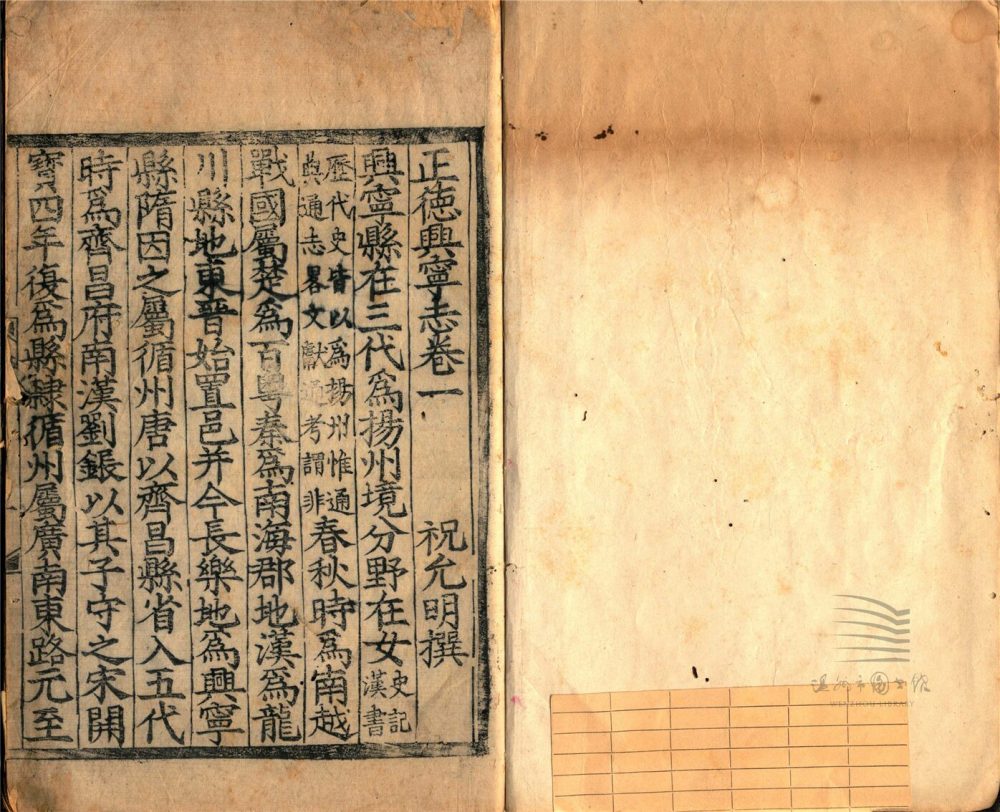 正德興寧志卷一 祝允明撰
興寧縣在三代爲揚州境分野在女史記漢書
歷代史皆以爲揚州惟通典通志畧文獻通考謂非春秋時爲南越
戰國屬楚爲百粤秦爲南海郡地漢爲龍
川縣地東晉始置邑并今長樂地爲興寧
縣隋因之屬循州唐以齊昌縣省入五代
時爲齊昌府南漢劉鋹以其子守之宋開
寳四年復爲縣隸循州屬廣南東路元至
温州市图书馆
WENZHOU LIBRARY